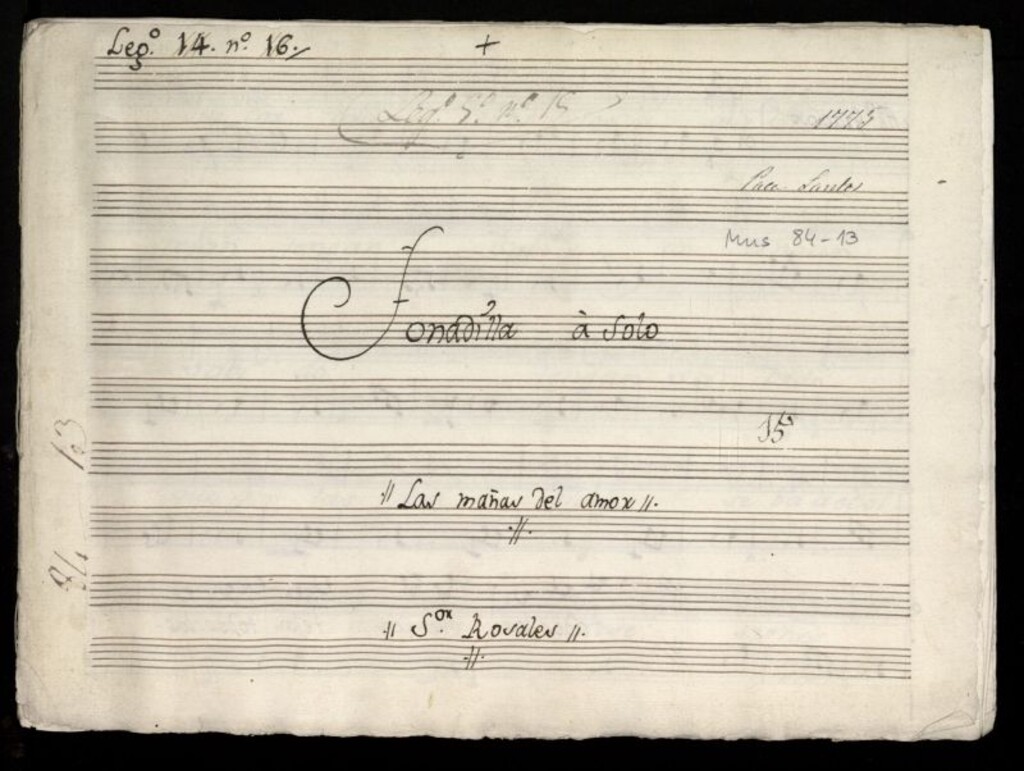 Leg.º 14. nº. 16. +
Leg.º 5.º nº 15
1775
Mus 84-13
Tonadilla à Solo
15
Las mañas del amor
S.or Rosales
84 13